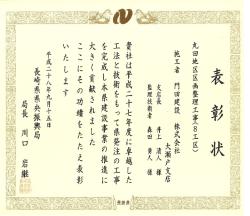 表彰状
丸田地区区画整理工事(8工区)
施工者 門田建設 株式会社
大瀬戸支店
支店長 井上 清人 様
監理技術者 森田 勇人 様
貴社は平成二十七年度に卓越した
工法と技術をもって県発注の工事
を完成し本県建設事業の推進に
大きく貢献されました
ここにその功績をたたえ表彰
いたします
平成二十八年九月十五日
長崎県県央振興局
局長 川口